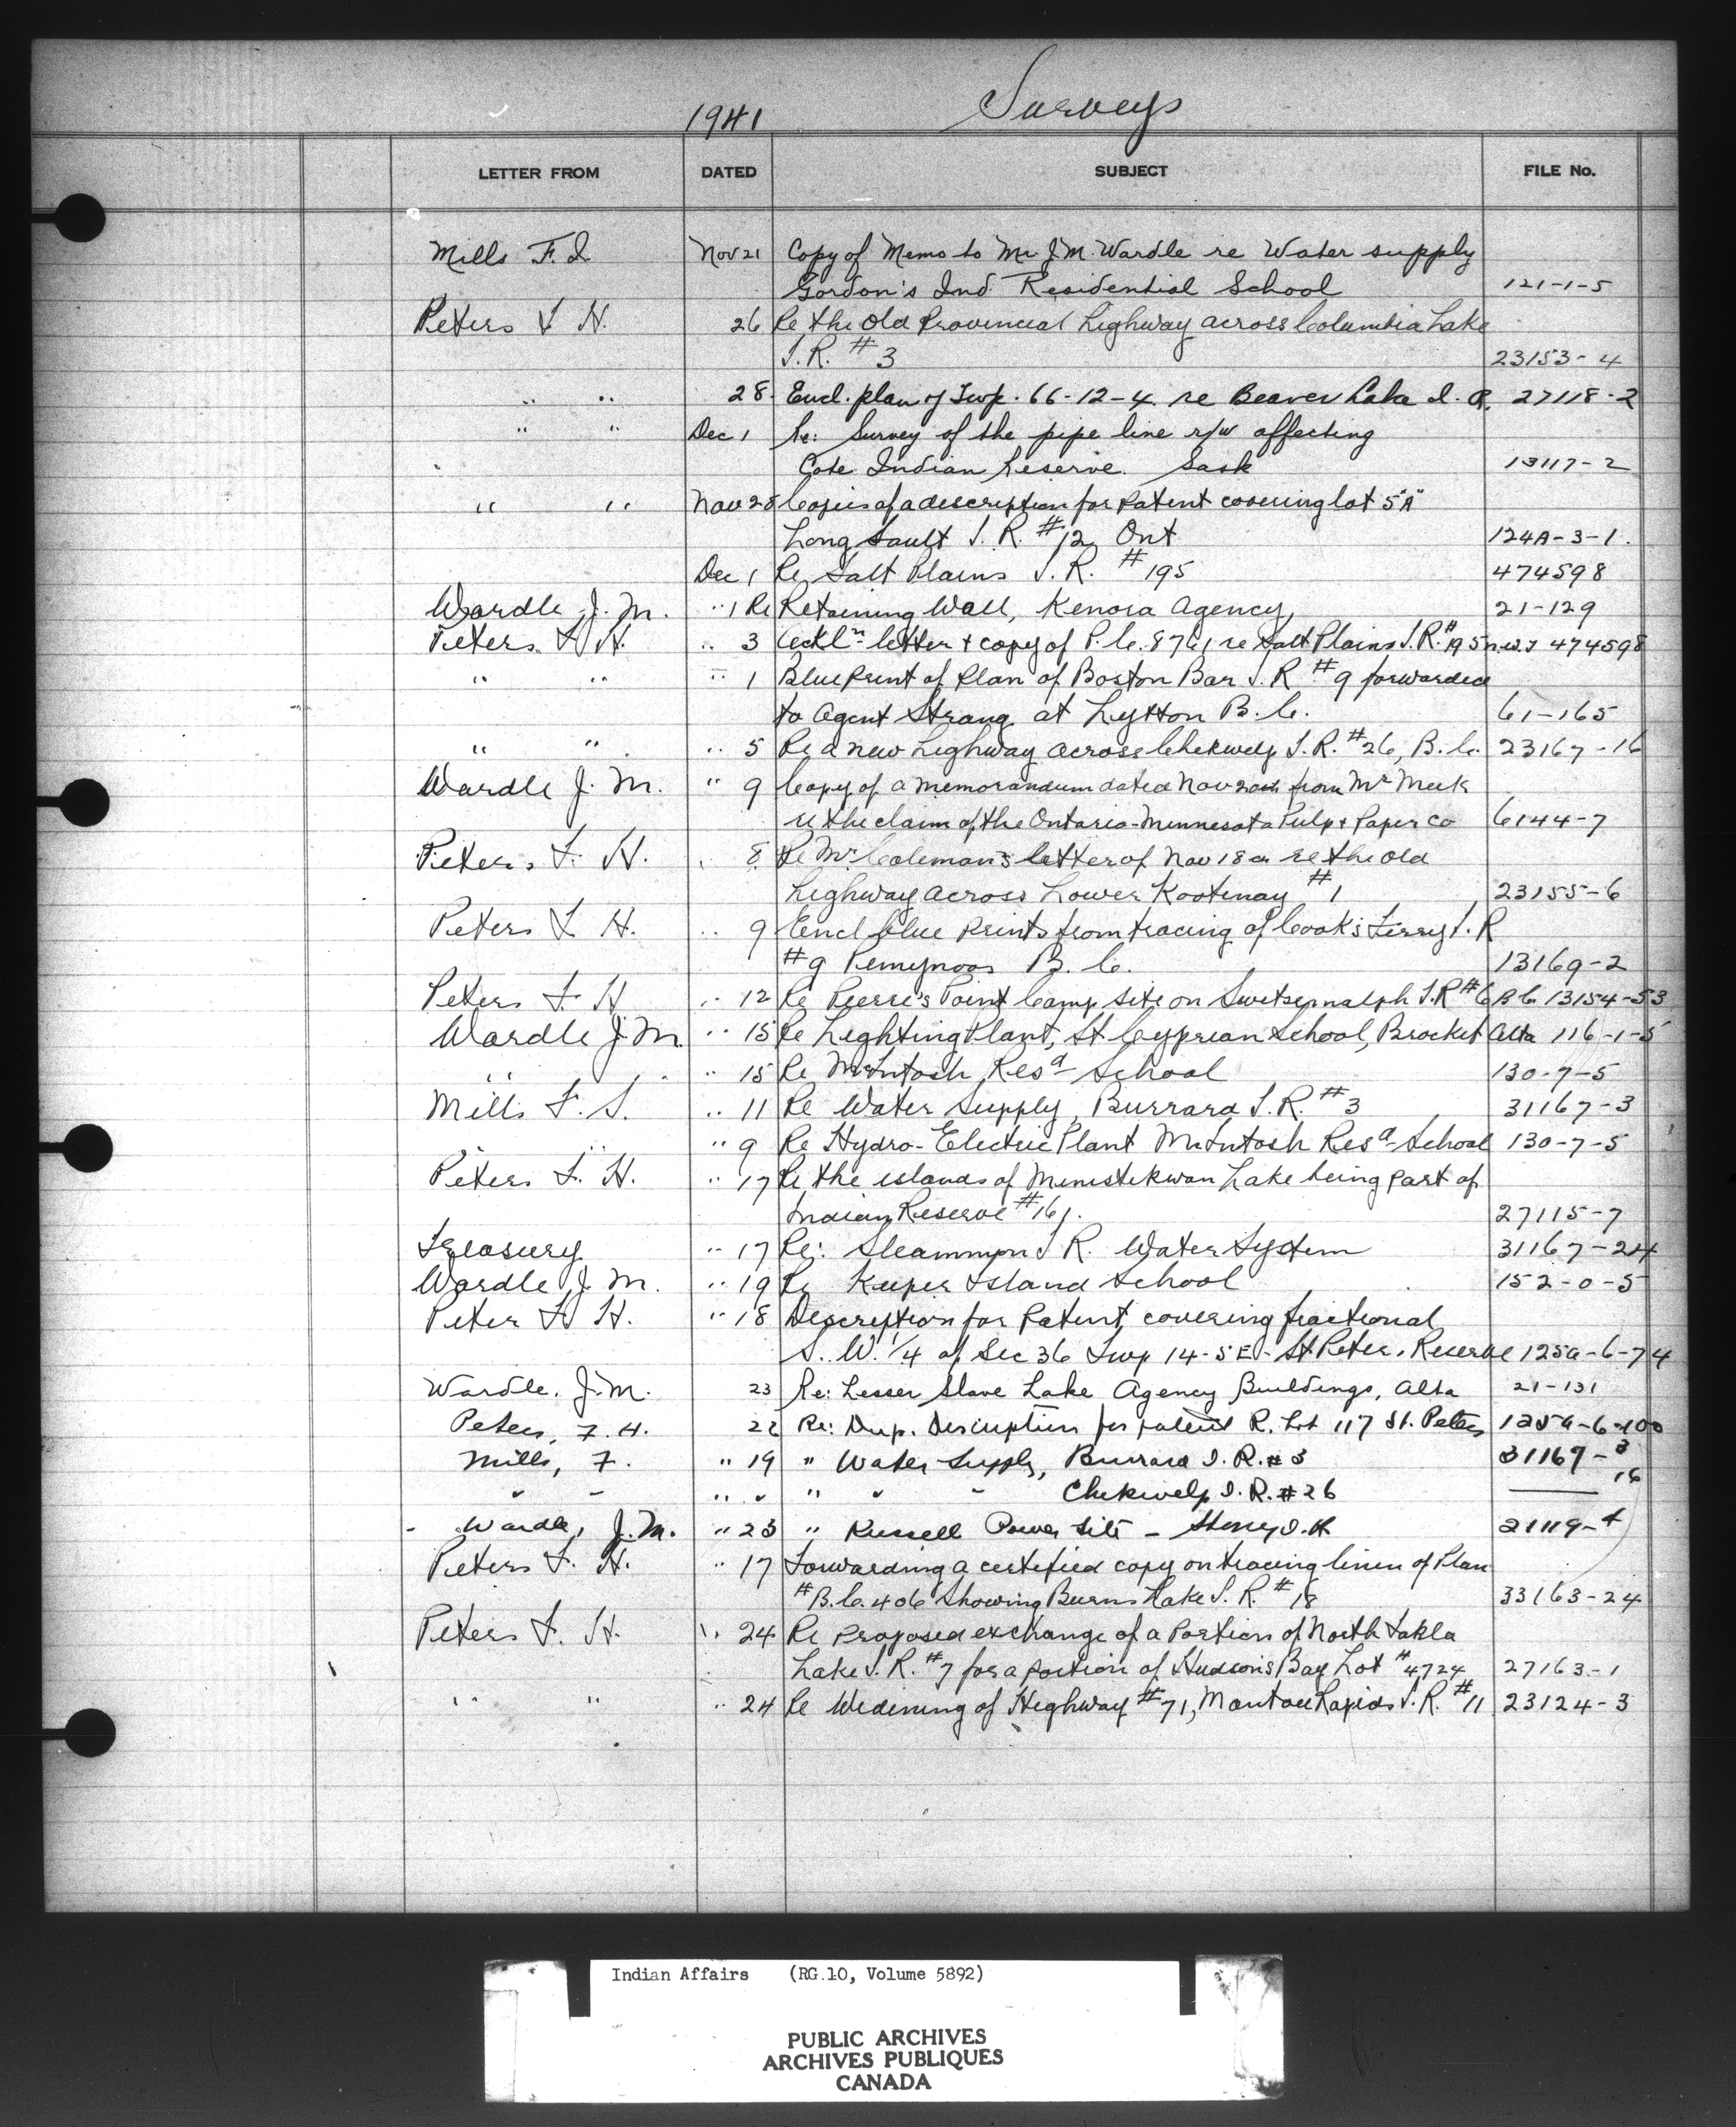 1941 Surveys
LETTER FROM DATED SUBJECT FILE No.
Mills F. I. Nov 21 Copy of Memo to Mr J. M. Wardle re Water supply
Gordon's Ind. Residential School 121-1-5
Peters F H. 26 Re the old Provincial highway across Columbia Lake
I.R. #3 23153-4
" " 28. Encl. plan of Twp. 66-12-4. re Beaver Lake I. R. 27118-2
" " Dec 1 Re: Survey of the pipe line r/w affecting
Cote Indian Reserve. Sask 13117-2
" " Nov 28 Copies of a description for Patent covering lot 5"A"
Long Sault I. R. #12 Ont 124A-3-1.
Dec 1 Re Salt Plains I. R. #195 474598
Wardle, J. M. " 1 Re Retaining Wall, Kenora Agency 21-129
Peters. F. H. " 3 letter & copy of P.C. 8761 re Salt Plains I.R. #195 N.W.T 474598
" " " 1 Blue Print of Plan of Boston Bar I. R #9 forwarded
to Agent Strang at Lytton B.C. 61-165
" " " 5 Re a new highway across Chekwelp I.R. #26, B.C. 23167-16
Wardle J. M. " 9 Copy of a memorandum dated Nov from Mr Meek
re the claim of the Ontario-Minnesota Pulp & Paper Co 6144-7
Peters F. H. 8 Re Mr Coleman's letter of Nov 18 re the old
highway across Lower Kootenay #1 23155-6
Peters F H. " 9 Encl blue Prints from tracing of Cook's Ferry I. R
#9 Pemynoos B. C. 13169-2
Peters F. H " 12 Re Pierre's Point Camp site on Switsemalph I.R #6 B C. 13154-53
Wardle J. M. " 15 Re Lighting Plant, St Cyprian School, Brocket Alta 116-1-5
" " " 15 Re McIntosh Resd School 130-7-5
Mills F. I. " 11 Re Water Supply, Burrard I. R. #3 31167-3
" " " 9 Re Hydro-Electric Plant McIntosh Resd School 130-7-5
Peters F. H. " 17 Re the islands of Ministikwan Lake being part of
Indian Reserve #161. 27115-7
Treasury " 17 Re: Sleammon I R. Water System 31167-24
Wardle, J. M. " 19 Re Kuper Island School 152-0-5
Peter F. H. " 18 Description for Patent, covering fractional
S. W. 1/4 of Sec 36 Twp 14-5 E - St Peters Reserve 125a-6-74
Wardle, J. M. 23 Re: Lesser Slave Lake Agency Buildings, Alta 21-131
Peters, F. H. 22 Re: Dup. Description for patent R. Lot 117 St. Peters 125a-6-100
Mills, F. " 19 " Water Supply, Burrard I. R. #3 31167-3
" " " " " " " Chekwelp I. R. #26 16
Wardle, J. M. " 23 " Russell Power Site - Stony I. R 21119-4
Peters F. H. " 17 Forwarding a certified copy on tracing linen of Plan
#B.C. 406 Showing Burns Lake I. R. #18 33163-24
Peters F. H. " 24 Re Proposed exchange of a Portion of North Takla
Lake I. R. #7 for a portion of Hudson's Bay Lot #4724 27163-1
" " " 24 Re Widening of Highway #71, Manitou Rapids I. R. #11 23124-3
Indian Affairs (RG.10, Volume 5892)
PUBLIC ARCHIVES
ARCHIVES PUBLIQUES
CANADA